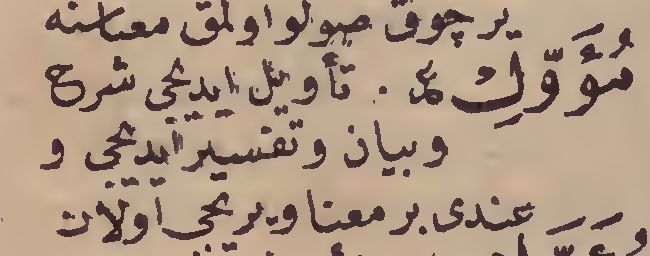 یر چوق صولو اولمق معناسنه
مُؤَوِّل ص. تأویل ایدیجی شرح
وبیان وتفسیر ایدیجی و
عندی بر معنا ویریجی اولان